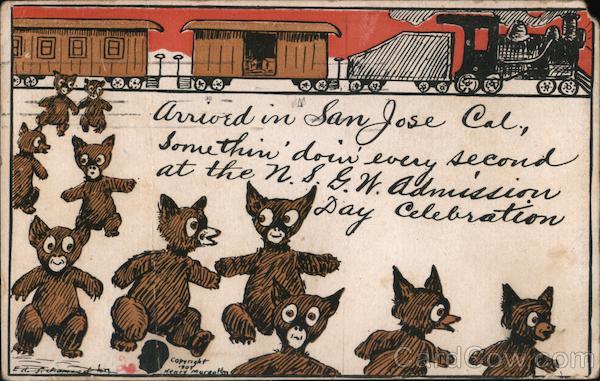 Arrived in San Jose Cal.,
Somethin' doin' every second
at the N. S. G. W. Admission
Day Celebration
Copyright
1907
Henry
Ed.
CardCow.com